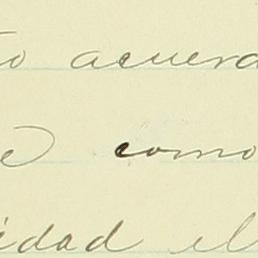 to acuerd
e como
idad el